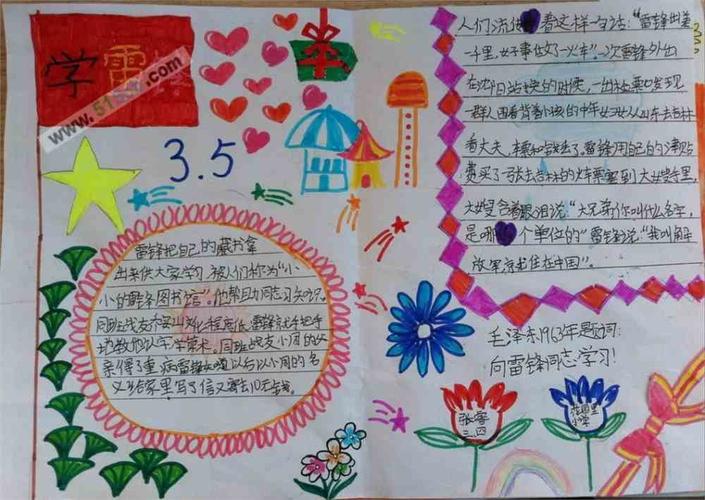 学雷锋
www.51
3.5
雷锋把自己的藏书拿
出来供大家学习,被人们称为“小
小的解放图书馆”。他帮助同志习知识。
同班战友乔安山文化程度低,雷锋就手把手
地教他认字学算术。同班战友小周的父
亲得了重病雷锋知道以后以小周的名
义给家里写了信又寄去10元钱。
人们流传看这样一句话:“雷锋出差
一千里,好事做了一火车”。一次雷锋外出
在沈阳站换车的时候,一出检票口发现
一群人围看背着小孩的中年妇女从山东去吉林
看丈夫,车票和钱丢了。雷锋用自己的津贴
费买了一张去吉林的火车票塞到大嫂手里,
大嫂含着眼泪说:“大兄弟你叫什么名字,
是哪个单位的”雷锋说:“我叫解
放军家就住在中国”。
毛泽东1963年题词:
向雷锋同志学习!
三、四
小学